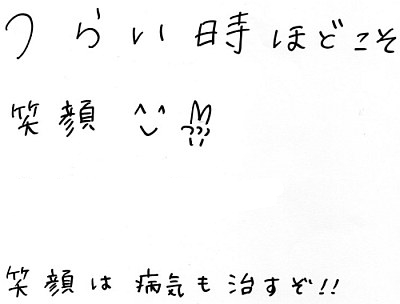 つらい時ほどこそ
笑顔
笑顔は病気も治すぞ!!